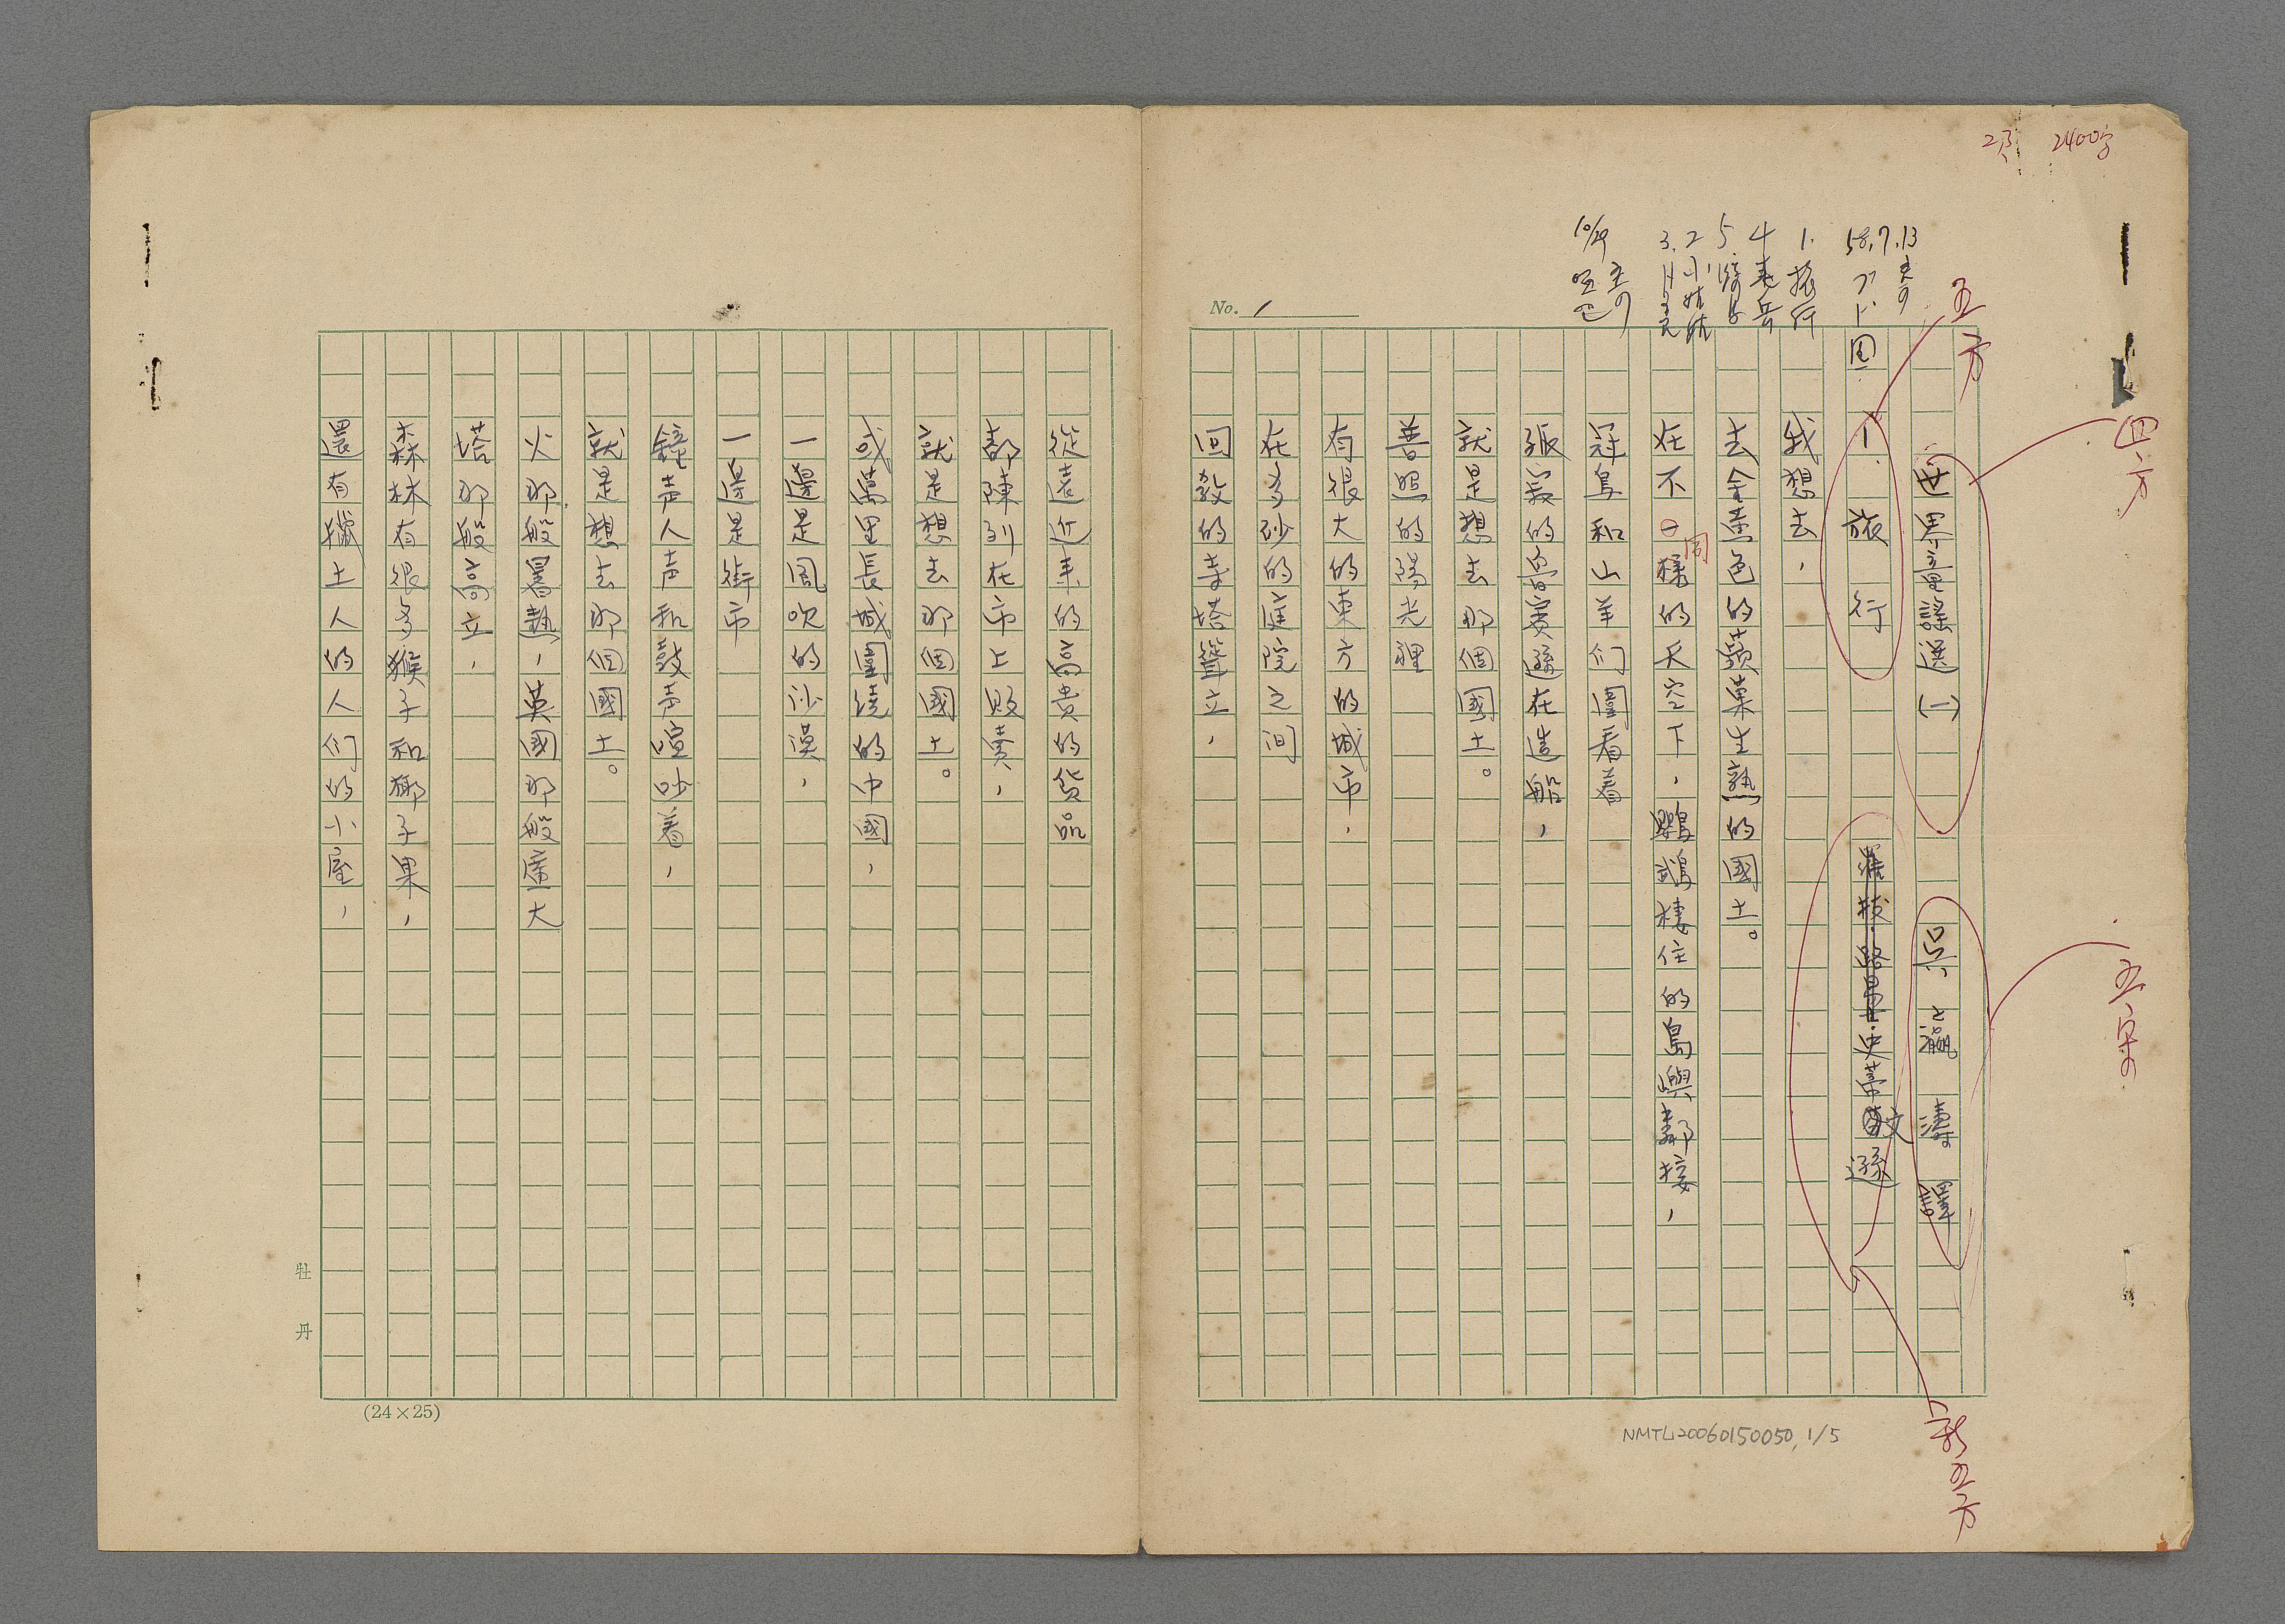 23 2400字
58.7.13
1. 旅行
2 小姑姑
10/29
No. 1
五方
四方
五宋
新五方
世界童謠選(一) 吳瀛濤 譯
1. 旅行 羅拔·路易士·史蒂文遜
我想去,
去金黃色的蘋菓生熟的國土。
在不同樣的天空下,鸚鵡棲住的島嶼鄰接,
冠鳥和山羊们圍看着
孤寂的魯賓遜在造船,
就是想去那個國土。
普照的陽光裡
有很大的東方的城市,
在多砂的庭院之间
回教的寺塔聳立,
從遠近来的高贵的货品
都陳列在市上販賣,
就是想去那個國土。
或萬里長城圍繞的中國,
一邊是風吹的沙漠,
一邊是街市
鐘声人声和鼓声喧吵着,
就是想去那個國土。
火那般暑熱,英國那般廣大
塔那般高立,
森林有很多猴子和椰子果,
還有獵土人的人们的小屋,
牡丹
(24×25)
NMTL20060150050, 1/5